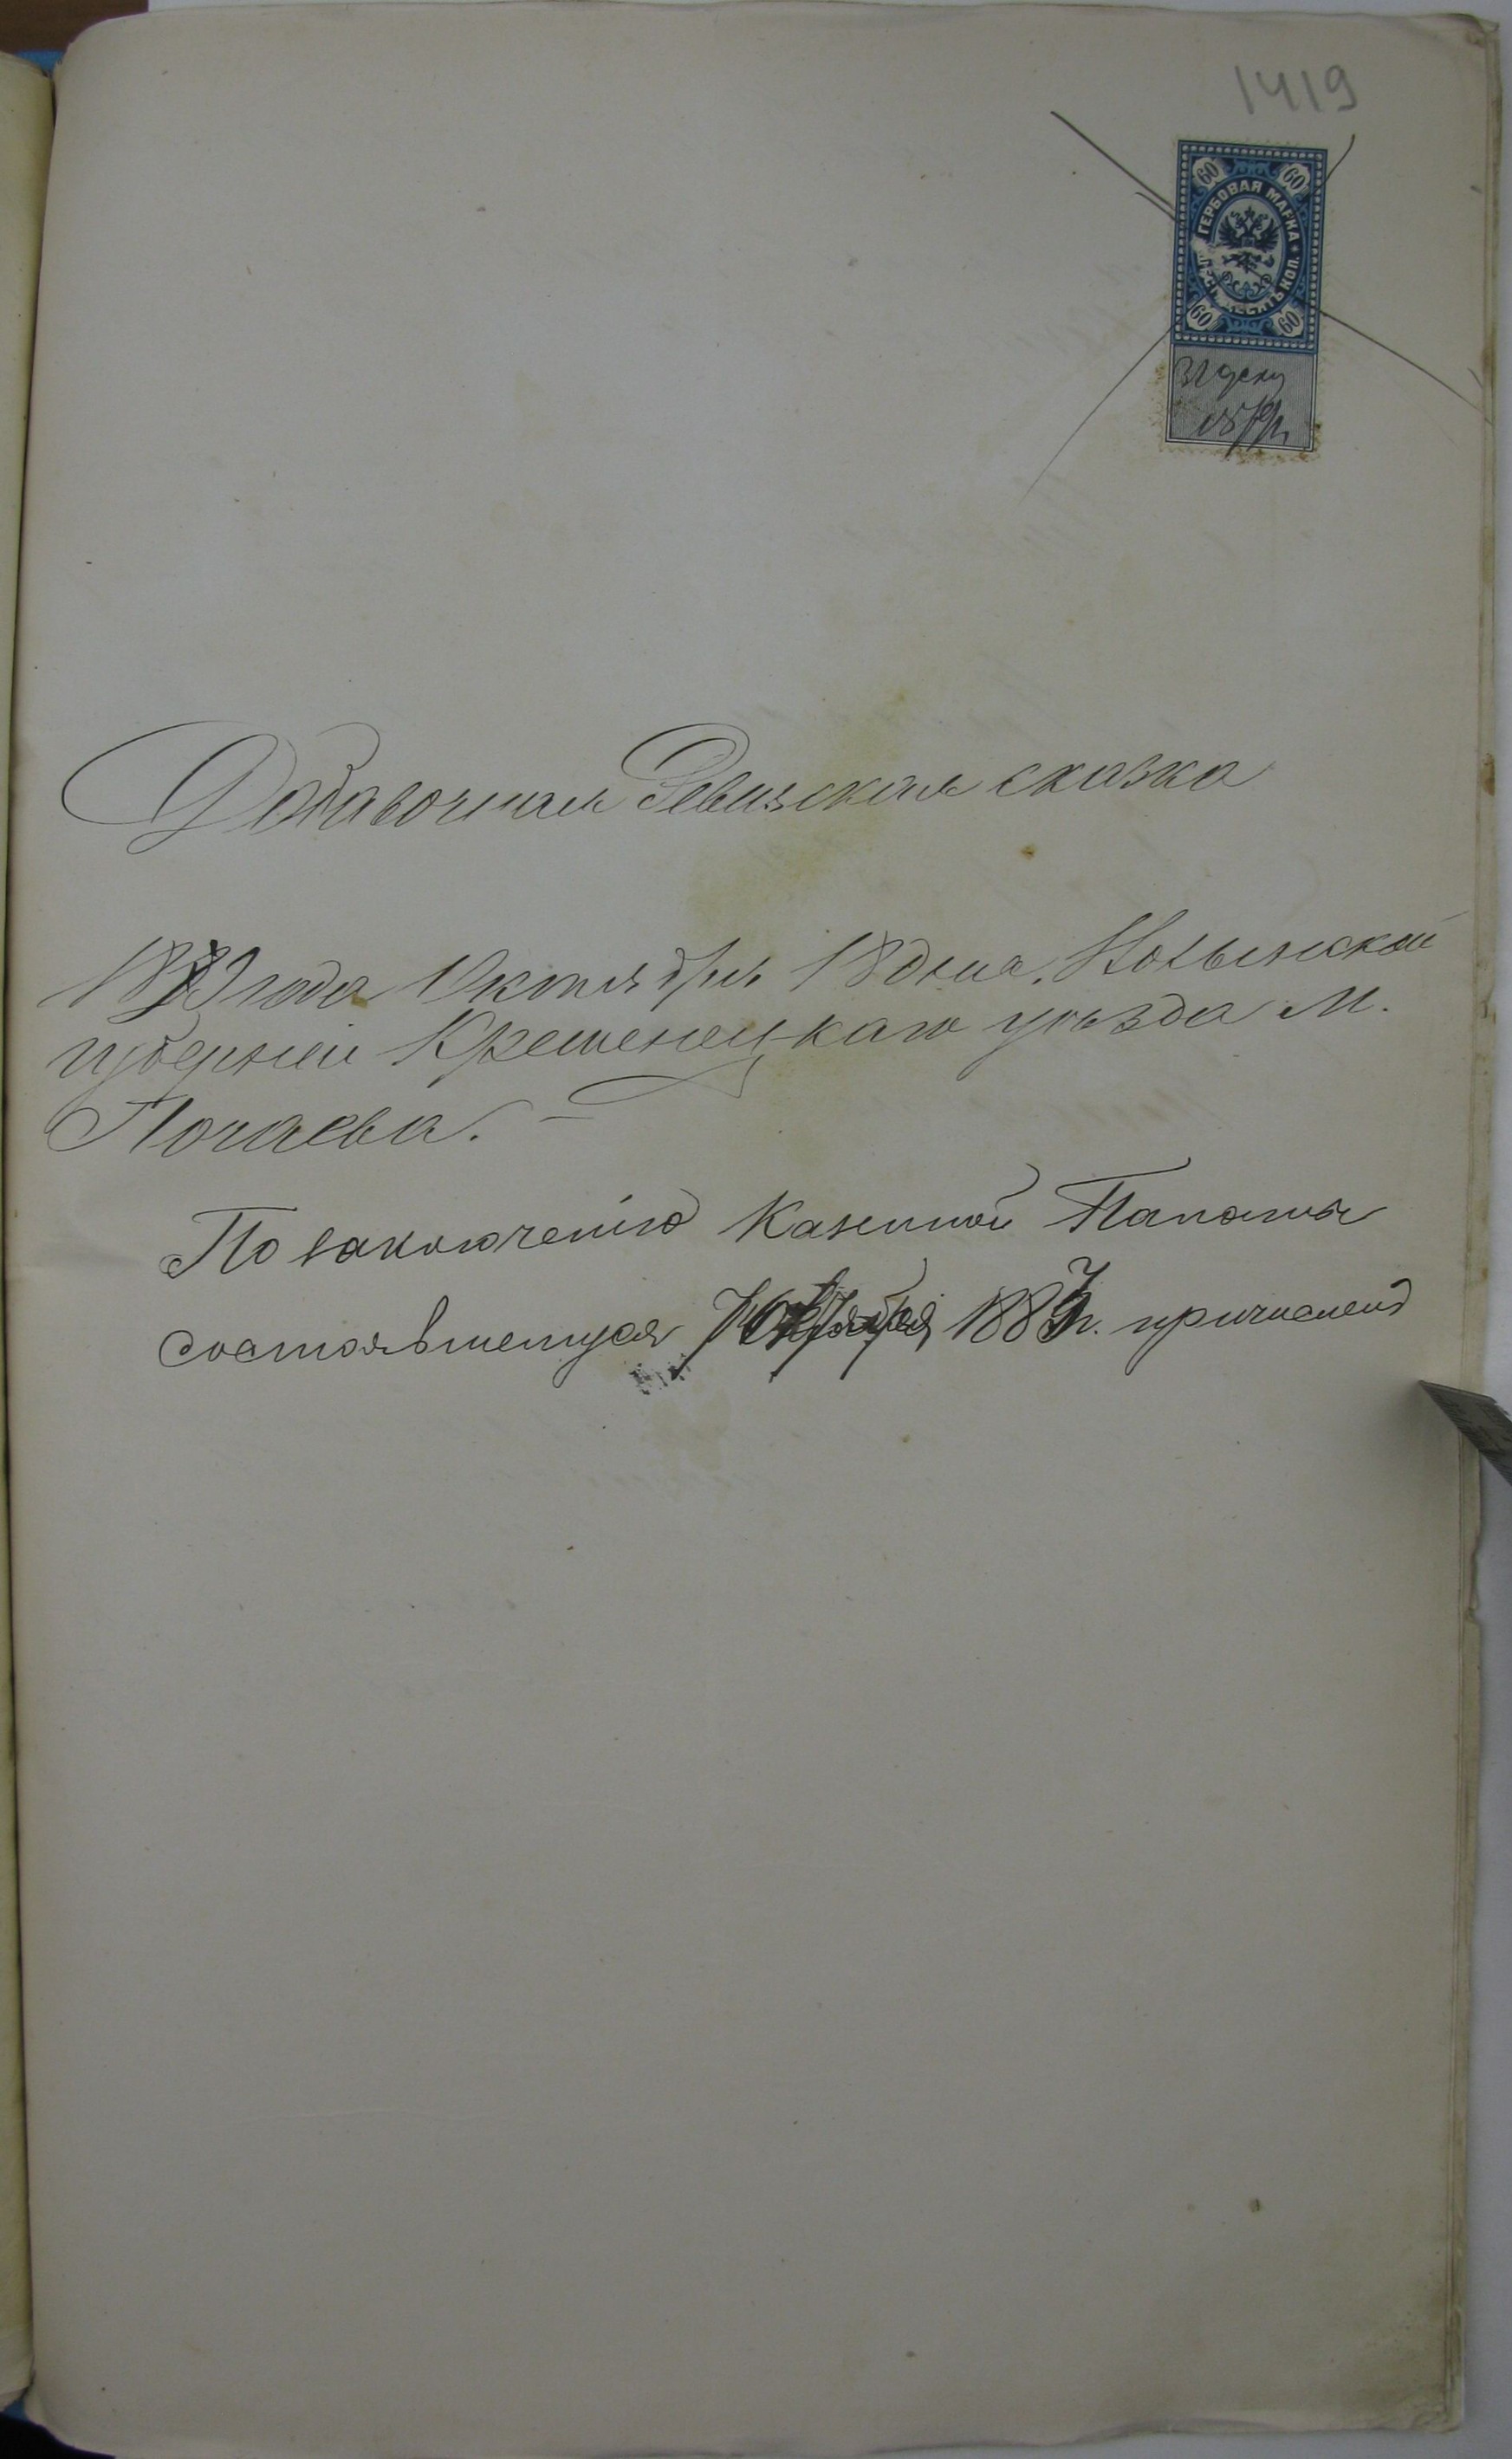 1419
60 60
ГЕРБОВАЯ МАРКА
ШЕСТЬДЕСЯТЪ КОП.
60 60
Добавочная Ревизская сказка
года Октября 18 дня. Волынской
губернии Кременецкаго уѣзда М.
Почаева. –
По заключенію Казенной Палаты
состоявшемуся 1887 г. причислены